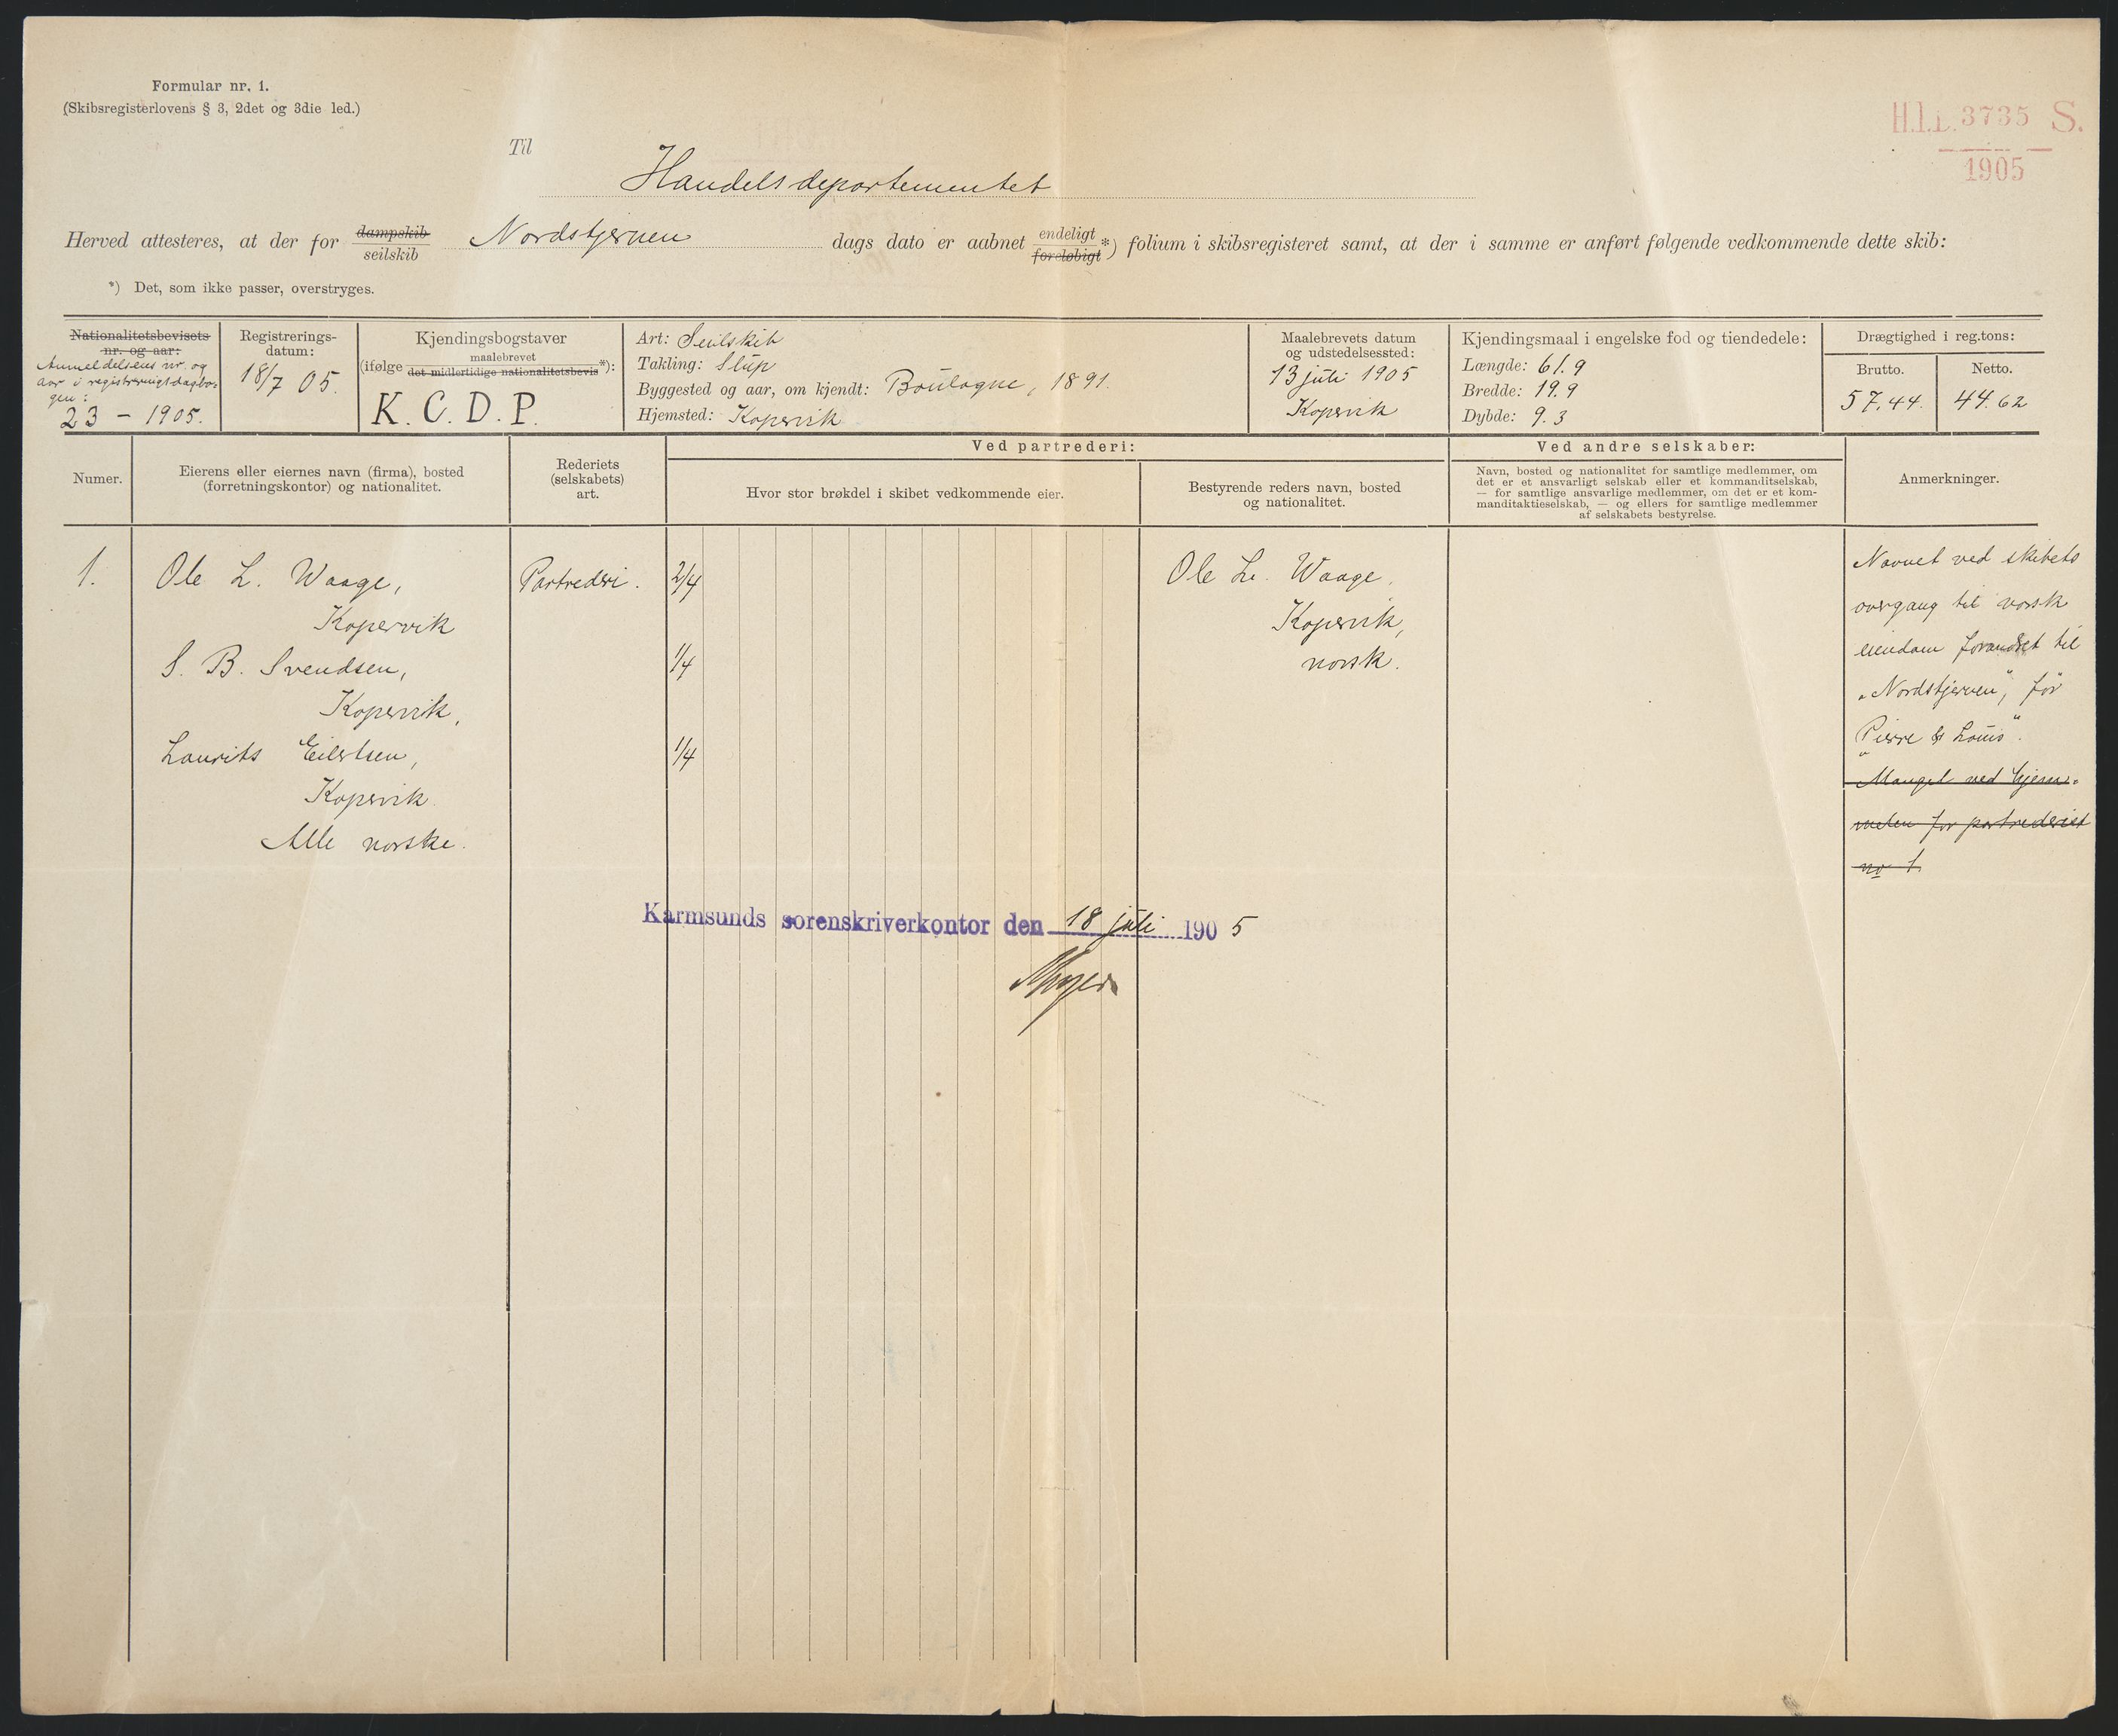 Formular nr. 1.
(Skibsregisterlovens § 3, 2det og 3die led.)
H.I.L. 3735 S.
1905
Til
Handelsdepartementet
Herved attesteres, at der for dampskib seilskib Nordstjernen dags dato er aabnet endeligt foreløbigt *) folium i skibsregisteret samt, at der i samme er anført følgende vedkommende dette skib:
*) Det, som ikke passer, overstryges.
Nationalitetsbevisets
nr. og aar:
Anmeldelsens nr. og
aar i registreringsdagbo-
gen:
23 - 1905.
Registrerings-
datum:
18/7 05.
Kjendingsbogstaver
(ifølge maalebrevet det midlertidige nationalitetsbevis *):
K. C. D. P.
Art: Seilskib
Takling: Slup
Byggested og aar, om kjendt: Boulogne, 1891.
Hjemsted: Kopervik
Maalebrevets datum
og udstedelsessted:
13 juli 1905
Kopervik
Kjendingsmaal i engelske fod og tiendedele:
Længde: 61.9
Bredde: 19.9
Dybde: 9.3
Drægtighed i reg.tons:
Brutto.
57.44.
Netto.
44.62
Numer.
Eierens eller eiernes navn (firma), bosted
(forretningskontor) og nationalitet.
Rederiets
(selskabets)
art.
Ved partrederi:
Hvor stor brøkdel i skibet vedkommende eier.
Bestyrende reders navn, bosted
og nationalitet.
Ved andre selskaber:
Navn, bosted og nationalitet for samtlige medlemmer, om
det er et ansvarligt selskab eller et kommanditselskab,
— for samtlige ansvarlige medlemmer, om det er et kom-
manditaktieselskab, — og ellers for samtlige medlemmer
af selskabets bestyrelse.
Anmerkninger.
1.
Ole L. Waage,
Kopervik
S. B. Svendsen,
Kopervik,
Laurits Eilertsen,
Kopervik.
Alle norske.
Partrederi.
2/4
1/4
1/4
Ole L. Waage,
Kopervik,
norsk.
Navnet ved skibets
overgang til norsk
eiendom forandret til
"Nordstjernen", før
"Pierre & Louis".
Mangel ved hjem-
melen for partrederiet
no 1.
Karmsunds sorenskriverkontor den 18 juli 1905